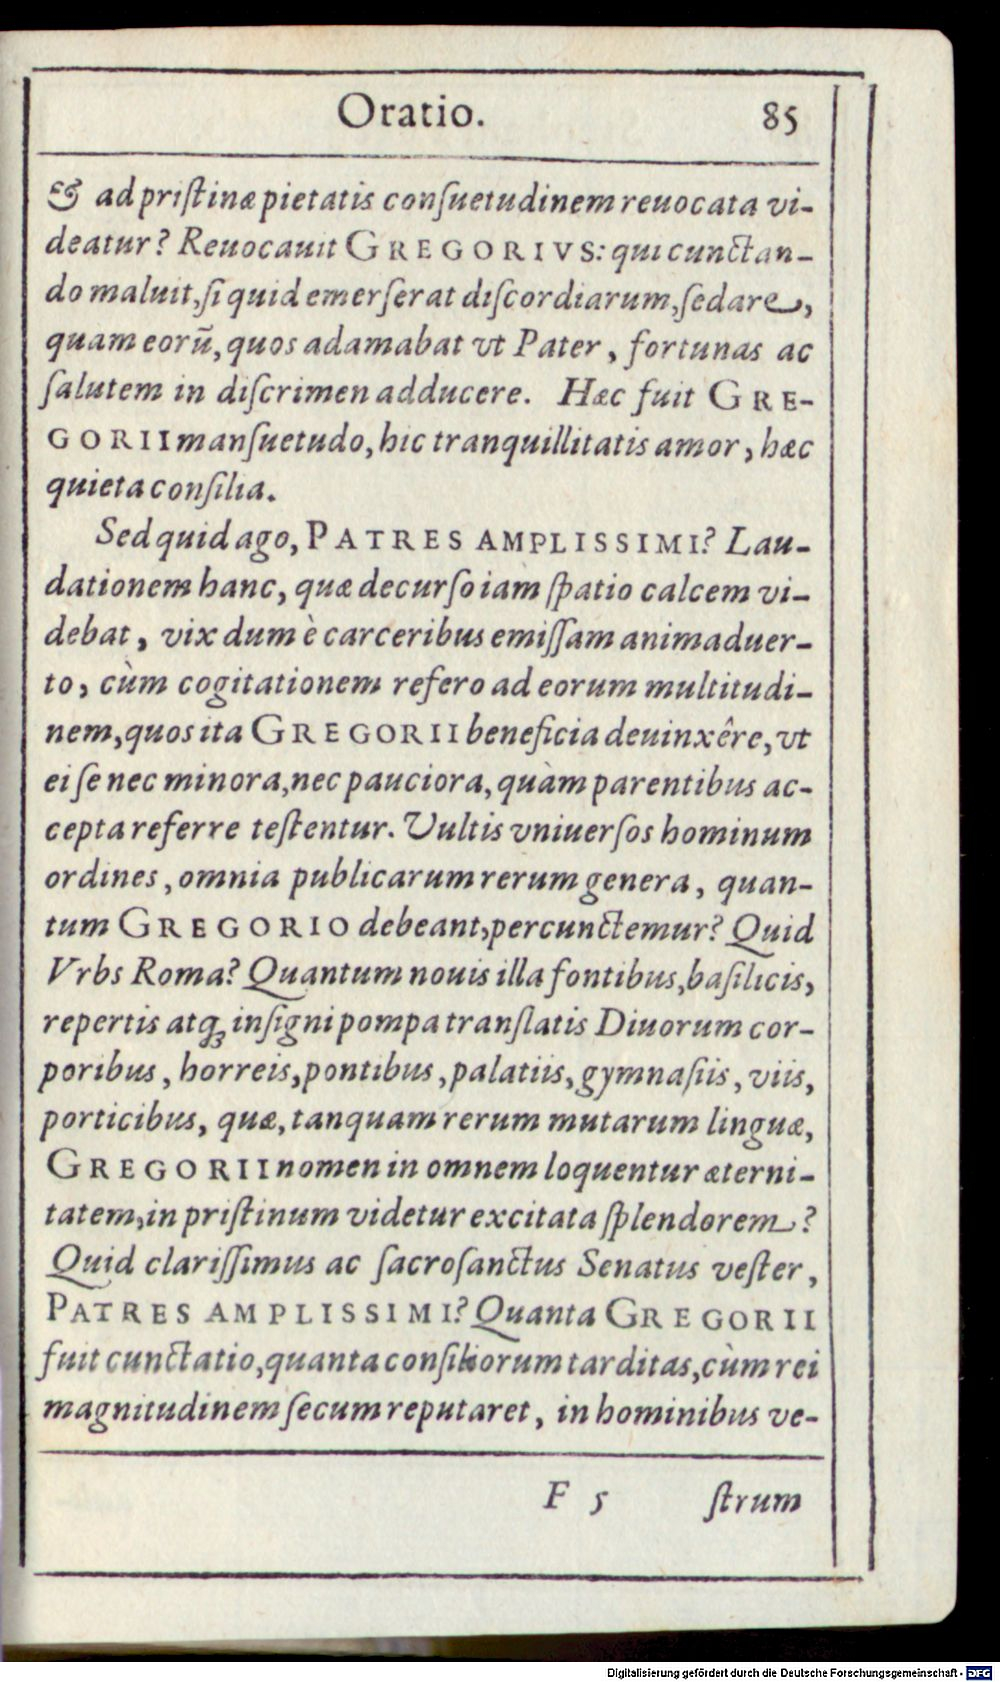 Oratio. 85
& ad priſtinæ pietatis conſuetudinem reuocata vi-
deatur? Reuocauit GREGORIVS: qui cunctan-
do maluit, ſi quid emerſerat diſcordiarum, ſedare,
quam eorũ, quos adamabat vt Pater, fortunas ac
ſalutem in diſcrimen adducere. Hæc fuit GRE-
GORII manſuetudo, hic tranquillitatis amor, hæc
quieta conſilia.
Sed quid ago, PATRES AMPLISSIMI? Lau-
dationem hanc, quæ decurſo iam ſpatio calcem vi-
debat, vix dum è carceribus emiſſam animaduer-
to, cùm cogitationem refero ad eorum multitudi-
nem, quos ita GREGORII beneficia deuinxêre, vt
ei ſe nec minora, nec pauciora, quàm parentibus ac-
cepta referre teſtentur. Vultis vniuerſos hominum
ordines, omnia publicarum rerum genera, quan-
tum GREGORIO debeant, percunctemur? Quid
Vrbs Roma? Quantum nouis illa fontibus, baſilicis,
repertis atq; inſigni pompa tranſlatis Diuorum cor-
poribus, horreis, pontibus, palatiis, gymnaſiis, viis,
porticibus, quæ, tanquam rerum mutarum linguæ,
GREGORII nomen in omnem loquentur æterni-
tatem, in priſtinum videtur excitata ſplendorem?
Quid clariſſimus ac ſacroſanctus Senatus veſter,
PATRES AMPLISSIMI? Quanta GREGORII
fuit cunctatio, quanta conſiliorum tarditas, cùm rei
magnitudinem ſecum reputaret, in hominibus ve-
F 5 ſtrum
Digitalisierung gefördert durch die Deutsche Forschungsgemeinschaft - DFG